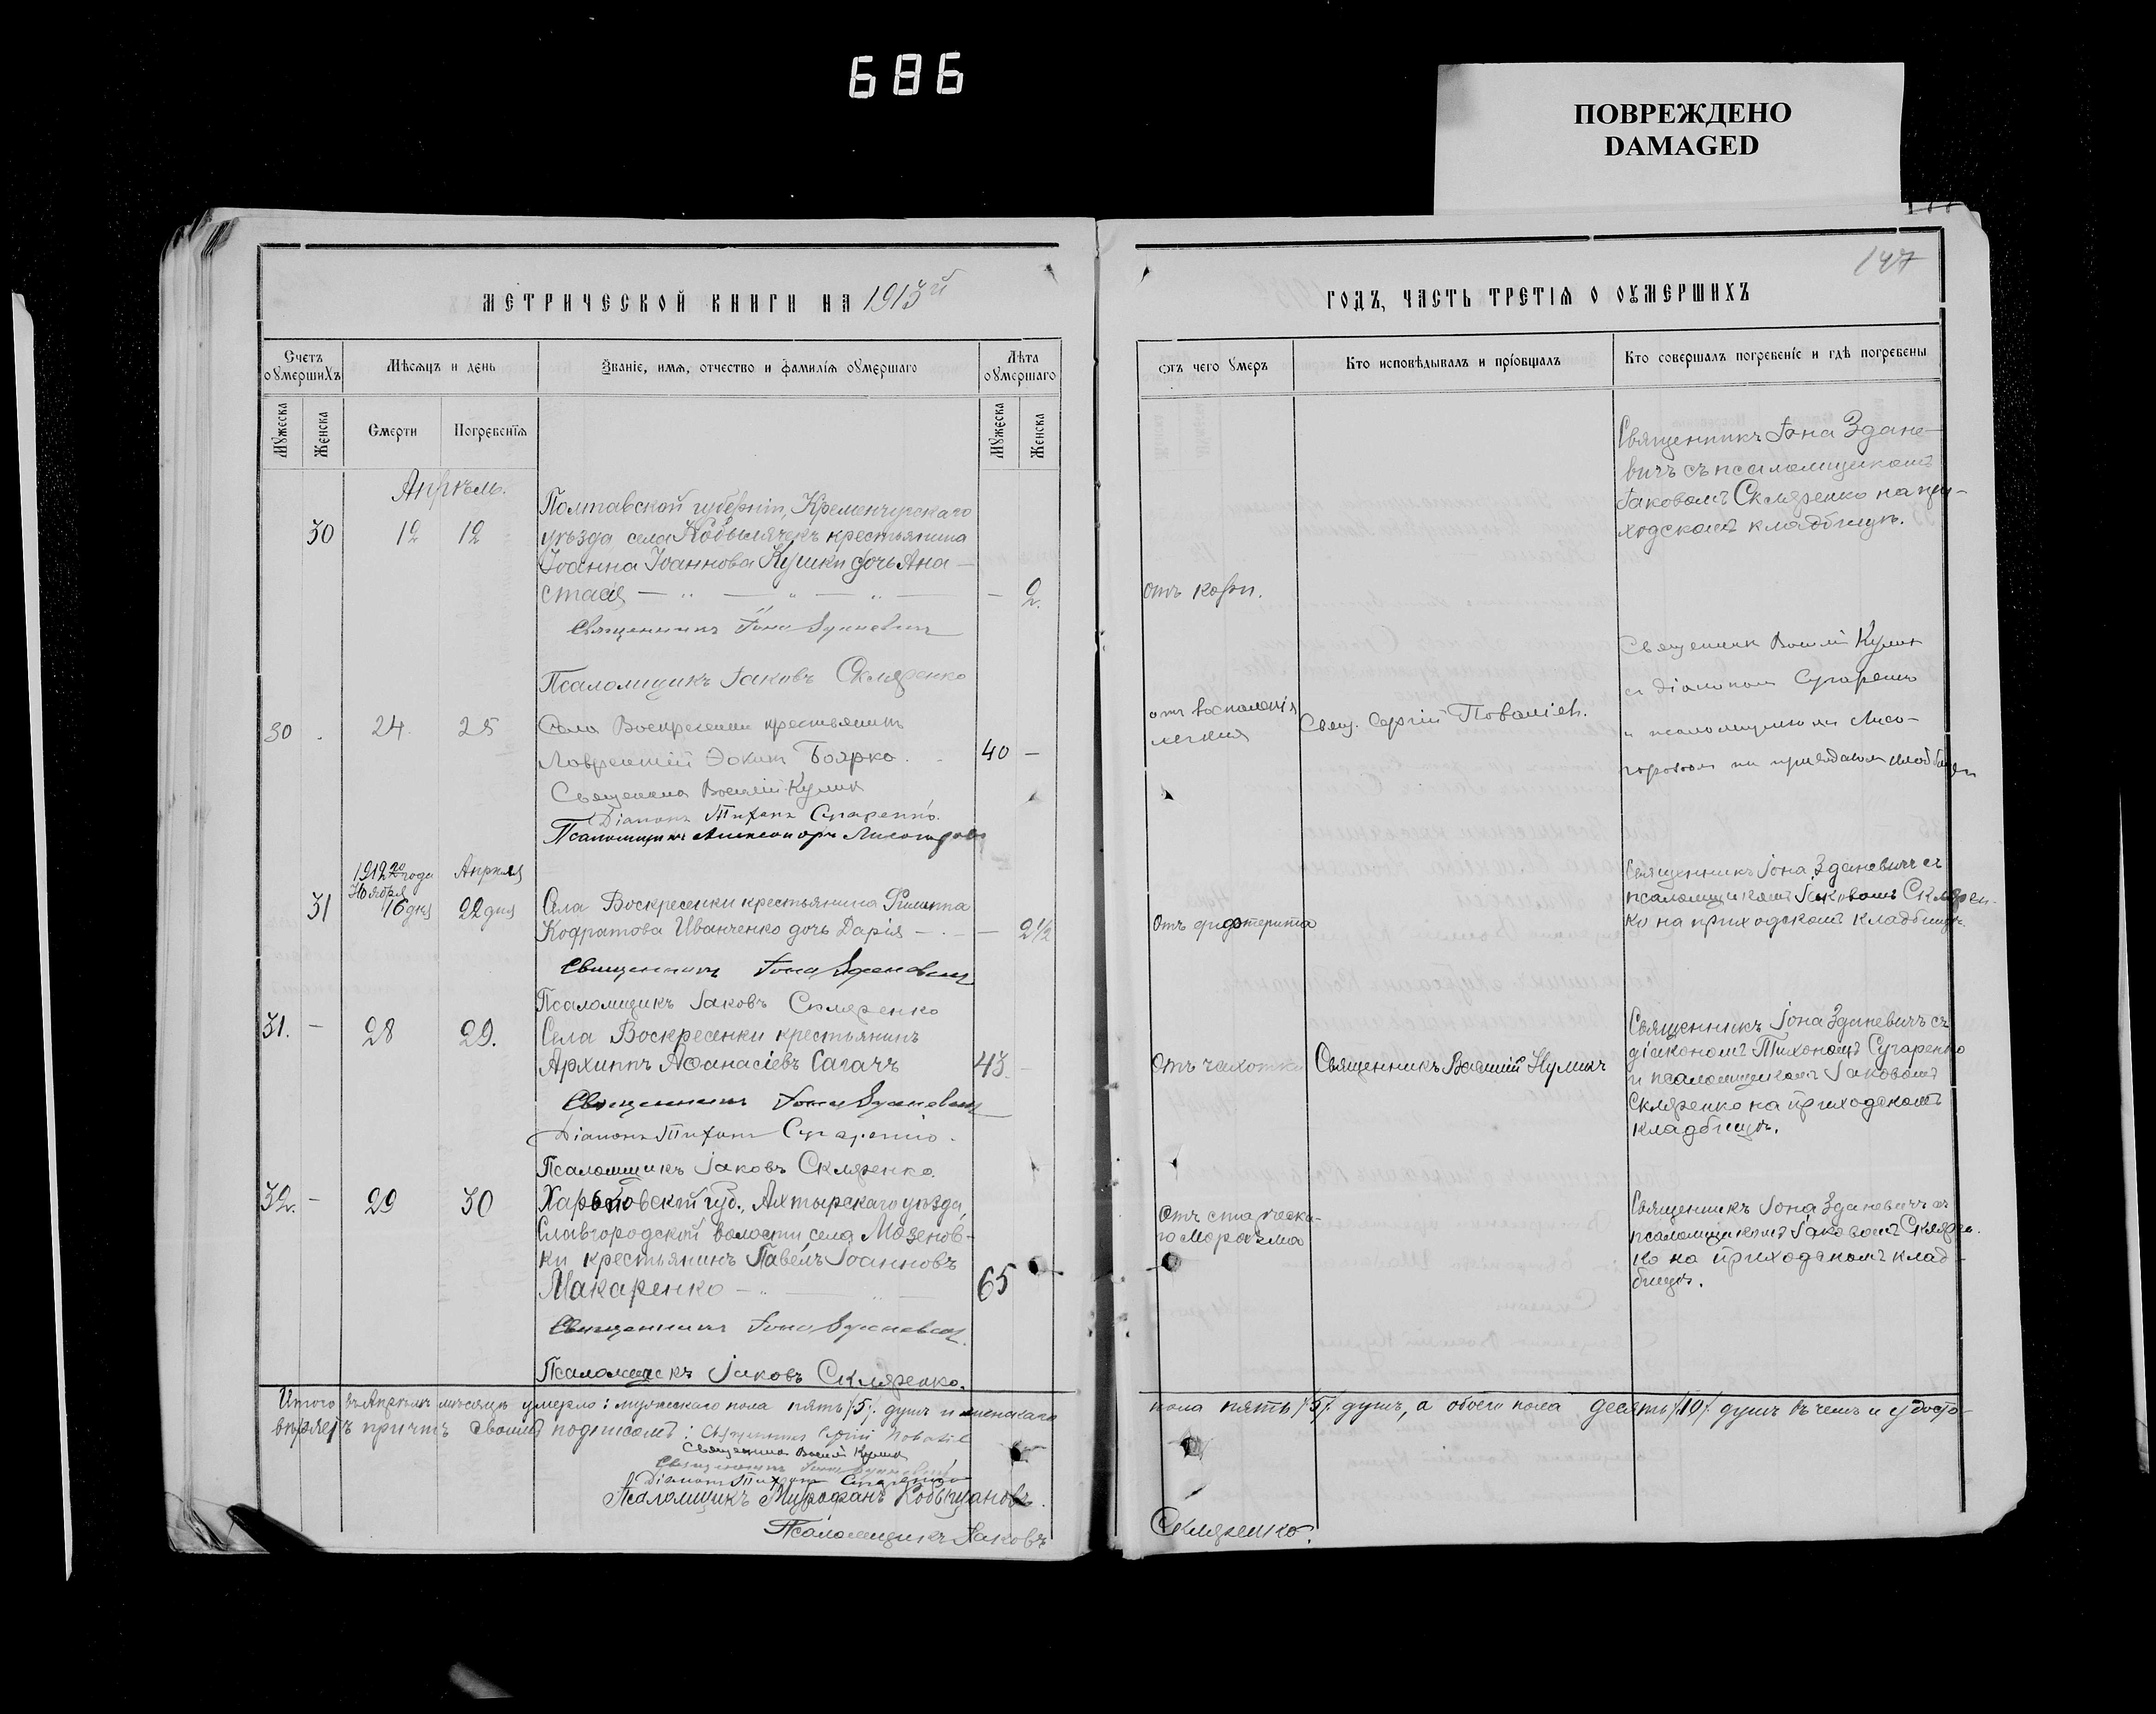 686
ПОВРЕЖДЕНО
DAMAGED
147
МЕТРИЧЕСКОЙ КНИГИ НА 1913й
ГОДЪ, ЧАСТЬ ТРЕТІѦ О ОУМЕРШИХЪ
Счетъ оумершихъ
Мѣсяцъ и день
Званіе, имя, отчество и фамилія оумершаго
Лѣта оумершаго
Отъ чего умеръ
Кто исповѣдывалъ и пріобщалъ
Кто совершалъ погребеніе и гдѣ погребены
Мужеска
Женска
Смерти
Погребенія
Мужеска
Женска
Апрѣль.
30 12 12
Полтавской губерніи, Кременчугскаго
уѣзда села Кобылячекъ крестьянина
Іоанна Іоаннова Кушки дочь Ана-
стасія — 2.
отъ кори.
Священникъ Іона Здане-
вичъ съ псаломщикомъ
Іаковомъ Скляренко на при-
ходскомъ кладбищѣ.
Священникъ Іона Зданевич
Псаломщикъ Іаковъ Скляренко
30 . 24. 25
Села Воскресенки крестьянинъ
Лаврентій Боярко . 40 —
отъ воспаленія
легкия
Свящ. Сергій
Священник Василій Кулик
съ діаконом Сугаренко
и псаломщиком Лисо-
горовом на приходском кладбищѣ
Священник Василій Кулик
Діаконъ Тихонъ Сугаренко.
Псаломщикъ Александръ Лисогоров
1912 года
Ноября
31 16 дня
Апрѣля
22 дня
Села Воскресенки крестьянина Филиппа
Кодратова Иванченко дочь Дарія — . — — 2½
Отъ дифтерита
Священникъ Іона Зданевичъ съ
псаломщикомъ Іаковомъ Склярен-
ко на приходскомъ кладбищѣ.
Священникъ Іона Зданевич
Псаломщикъ Іаковъ Скляренко
31. — 28 29.
Села Воскресенки крестьянинъ
Архиппъ Аѳанасіевъ Сагачъ 43. —
Отъ чахотки
Священникъ Василій Куликъ
Священникъ Іона Зданевичъ съ
діакономъ Тихономъ Сугаренко
и псаломщикомъ Іаковомъ
Скляренко на приходскомъ
кладбищѣ.
Священникъ Іона Зданевич
Діаконъ Тихонъ Сугаренко.
Псаломщикъ Іаковъ Скляренко.
32. — 29 30
Харьковской губ., Ахтырскаго уѣзда,
Славгородской волости села Мезенов-
ки крестьянинъ Павелъ Іоанновъ
Макаренко — 65
Отъ старческа-
го маразма
Священникъ Іона Зданевичъ съ
псаломщикомъ Іаковомъ Скляре-
ко на приходскомъ клад-
бищѣ.
Священникъ Іона Зданевич.
Псаломщикъ Іаковъ Скляренко.
Итого въ Апрѣлѣ мѣсяцѣ умерло: мужескаго пола пять /5/. душъ и женскаго
пола пять /5/. душъ, а обоего пола десять /10/. душъ въ чемъ и удосто-
вѣряетъ причтъ своимъ подписомъ: Священникъ Сергій
Священник Василій Кулик
Священникъ Іона Зданевич
Діаконъ Тихонъ Сугаренко
Псаломщикъ Митрофанъ
Псаломщикъ Іаковъ
Скляренко.